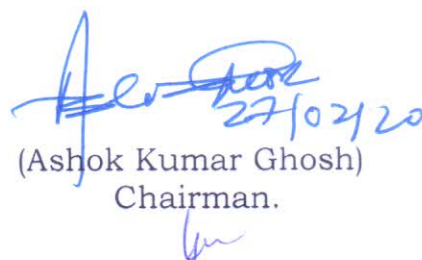 27/02/20
(Ashok Kumar Ghosh)
Chairman.